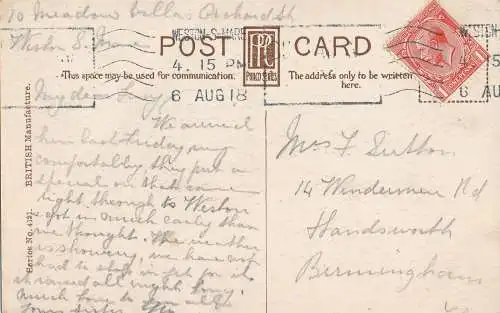 10 Meadow Villas Orchard St
Weston S. Mare
WESTON-S-MARE
4. 15 PM
6 AUG 18
POST CARD
PRR
PHOCO SERIES
This space may be used for communication.
The address only to be written
here.
WESTON-S-MARE
4 15
6 AUG
BRITISH Manufacture.
Series No.
My dear Lucy
We arrived
here last Friday
comfortably they put a
special on that came
right through to Weston
got in much early than
we thought. The weather
is showery, we have not
had to stop in yet for it
it rained all night long.
much love to you all
Your sister
Mrs F Sutton
14 Windermere Rd
Handsworth
Birmingham